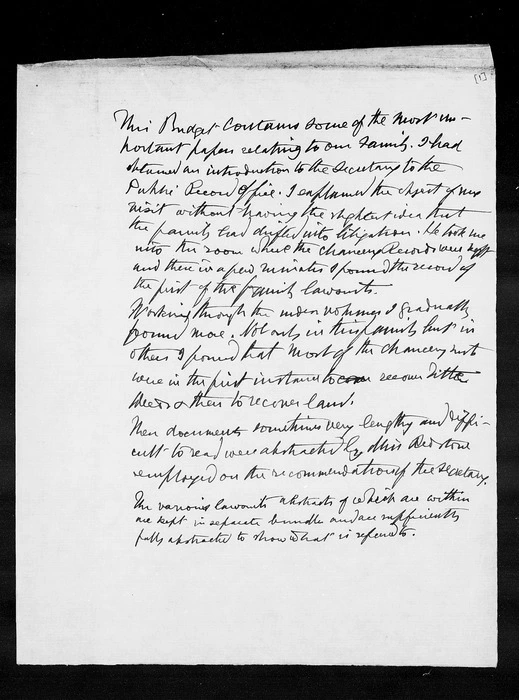 [1]
This Budget contains some of the most im-
portant papers relating to our family. I had
obtained an introduction to the Secretary to the
Public Record Office. I explained the object of my
visit without having the slightest idea that
the family had drifted into litigation. He took me
into the room where the Chancery Records were kept
and there in a few minutes I found the record of
the first of the family lawsuits.
Working through the index volumes I gradually
found more. Not only in this family but in
others I found that most of the Chancery suits
were in the first instance to recover title
deeds & then to recover land.
These documents sometimes very lengthy and diffi-
cult to read were abstracted by Miss Redstone
employed on the recommendation of the Secretary.
The various lawsuits abstracts of which are within
are kept in separate bundles and are sufficiently
fully abstracted to show what is referred to.